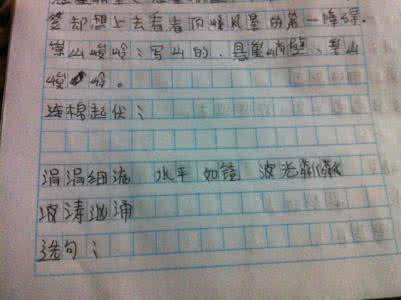 却想上去看看顶峰风景的第一障碍.
崇山峻岭:写山的、悬崖峭壁、重山
峻岭。
连棉起伏:
涓涓细流 水平如镜 波光粼粼
波涛汹涌
选句: